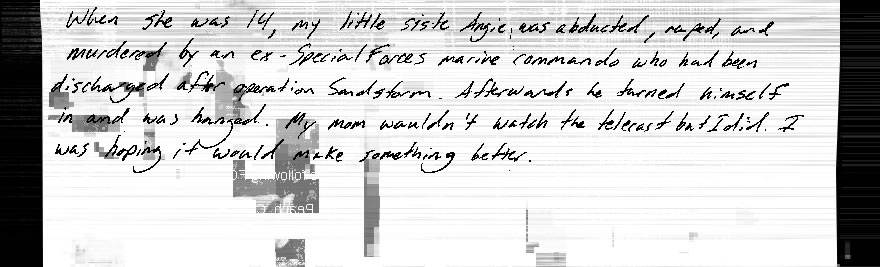 When she was 14, my little siste Angie, was abducted, raped, and
murdered by an ex-Special Forces marine commando who had been
discharged after operation Sandstorm. Afterwards he turned himself
in and was hanged. My mom wouldn't watch the telecast but I did. I
was hoping it would make something better.